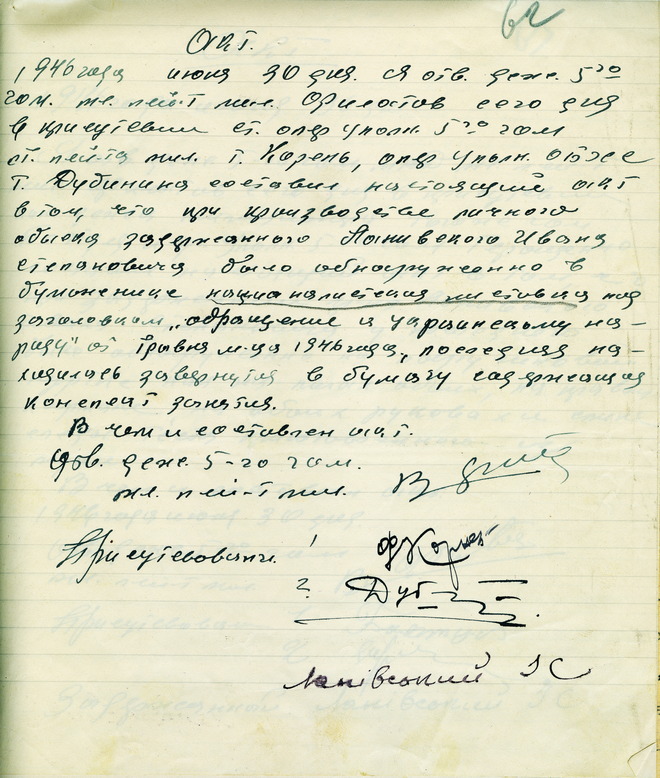 62
Акт.
1946 года июня 30 дня. Я отв. деж. 5го
гом. мл. лей-т мил. сего дня
в присутствии ст. опер уполн. 5го гом
ст. лей-та мил. т. Корень, опер уполн.
т. Дубинина составил настоящий акт
в том, что при производстве личного
обыска задержанного Ланивского Ивана
Степановича было обнаруженно в
буможенице националистская листовка под
заголовком „обращение к украинскому на-
роду" от Травня м-ца 1946 года, последняя на-
ходилась завернутая в бумагу содержащая
конспект занятия.
В чем и составлен акт.
Отв. деж. 5-го гом.
мл. лей-т мил.
Присутствовали: 1
Корень
2 Дуб
Ланівський ІС